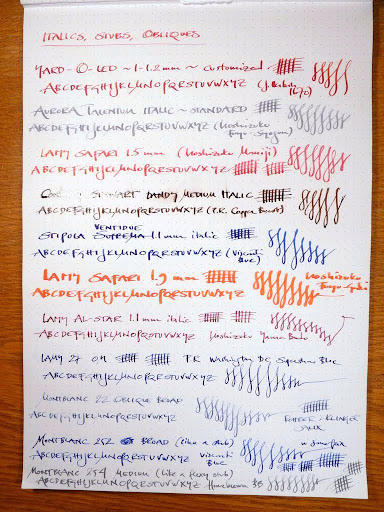 ITALICS, STUBS, OBLIQUES
YARD-O-LED ~ 1-1.2mm ~ customized
ABCDEFGHIJKLMNOPQRSTUVWXYZ (J. Herbin
AURORA TALENTUM ITALIC ~ STANDARD
ABCDEFGHIJKLMNOPQRSTUVWXYZ (Iroshizuku
LAMY SAFARI 1.5 mm (Iroshizuku Momiji)
ABCDEFGHIJKLMNOPQRSTUVWXYZ
STEWART DANDY MEDIUM ITALIC
ABCDEFGHIJKLMNOPQRSTUVWXYZ (P.R. Copper Burst)
VENTIDUE
STIPULA SUPREMA 1.1mm italic
ABCDEFGHIJKLMNOPQRSTUVWXYZ (Visconti Blue)
LAMY SAFARI 1.9 mm Iroshizuku
ABCDEFGHIJKLMNOPQRSTUVWXYZ
LAMY AL-STAR 1.1mm italic
ABCDEFGHIJKLMNOPQRSTUVWXYZ Iroshizuku Yama Budo
LAMY 27 OM P.R. Washington DC Supershow Blue
ABCDEFGHIJKLMNOPQRSTUVWXYZ
MONTBLANC 22 OBLIQUE BROAD
ABCDEFGHIJKLMNOPQRSTUVWXYZ ROHRER & KLINGNER
MONTBLANC 252 BROAD (like a stub)
ABCDEFGHIJKLMNOPQRSTUVWXYZ Visconti Blue
MONTBLANC 254 MEDIUM (like a flexy stub)
ABCDEFGHIJKLMNOPQRSTUVWXYZ